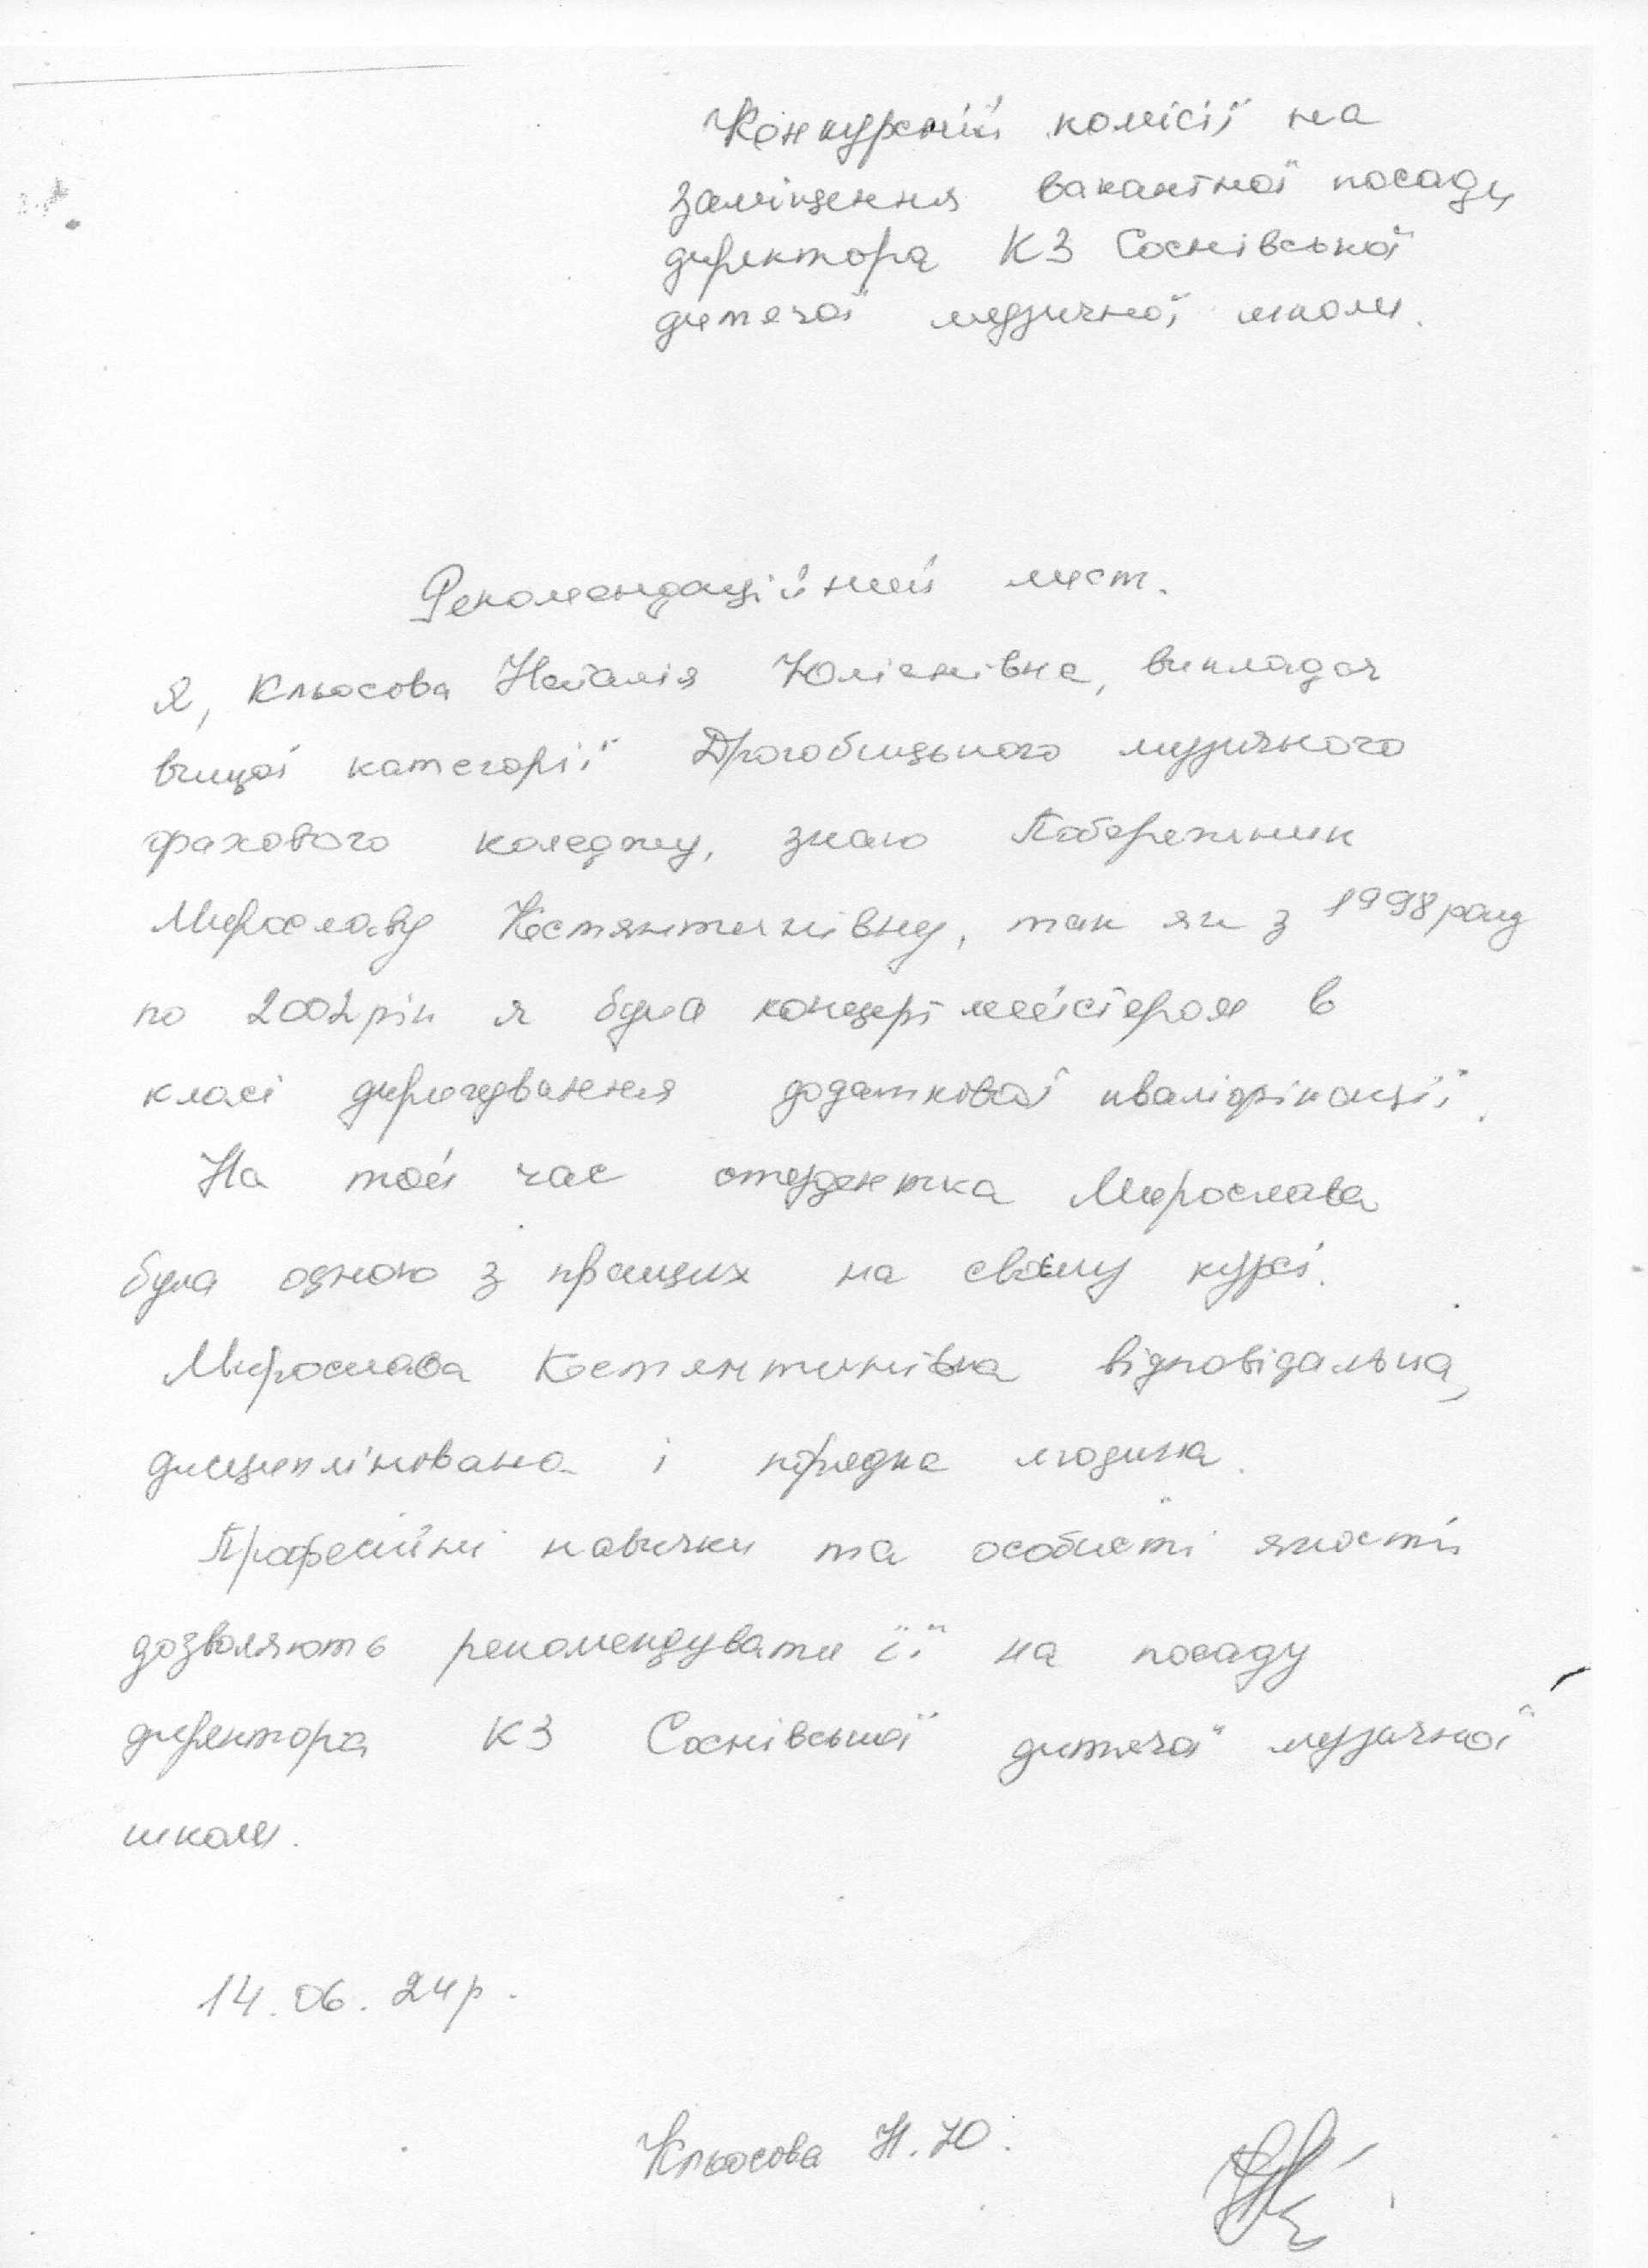 Конкурсній комісії на
заміщення вакантної посади
директора КЗ Соснівської
дитячої музичної школи.
Рекомендаційний лист.
Я, Кльосова Наталія Юліанівна, викладач
вищої категорії Дрогобицького музичного
фахового коледжу, знаю Побережник
Мирославу Костянтинівну, так як з 1998 року
по 2002 рік я була концертмейстером в
класі диригування додаткової кваліфікації.
На той час студентка Мирослава
була одною з кращих на своєму курсі.
Мирослава Костянтинівна відповідальна,
дисциплінована і порядна людина.
Професійні навички та особисті якості
дозволяють рекомендувати її на посаду
директора КЗ Соснівської дитячої музичної
школи.
14.06.24р.
Кльосова Н.Ю.